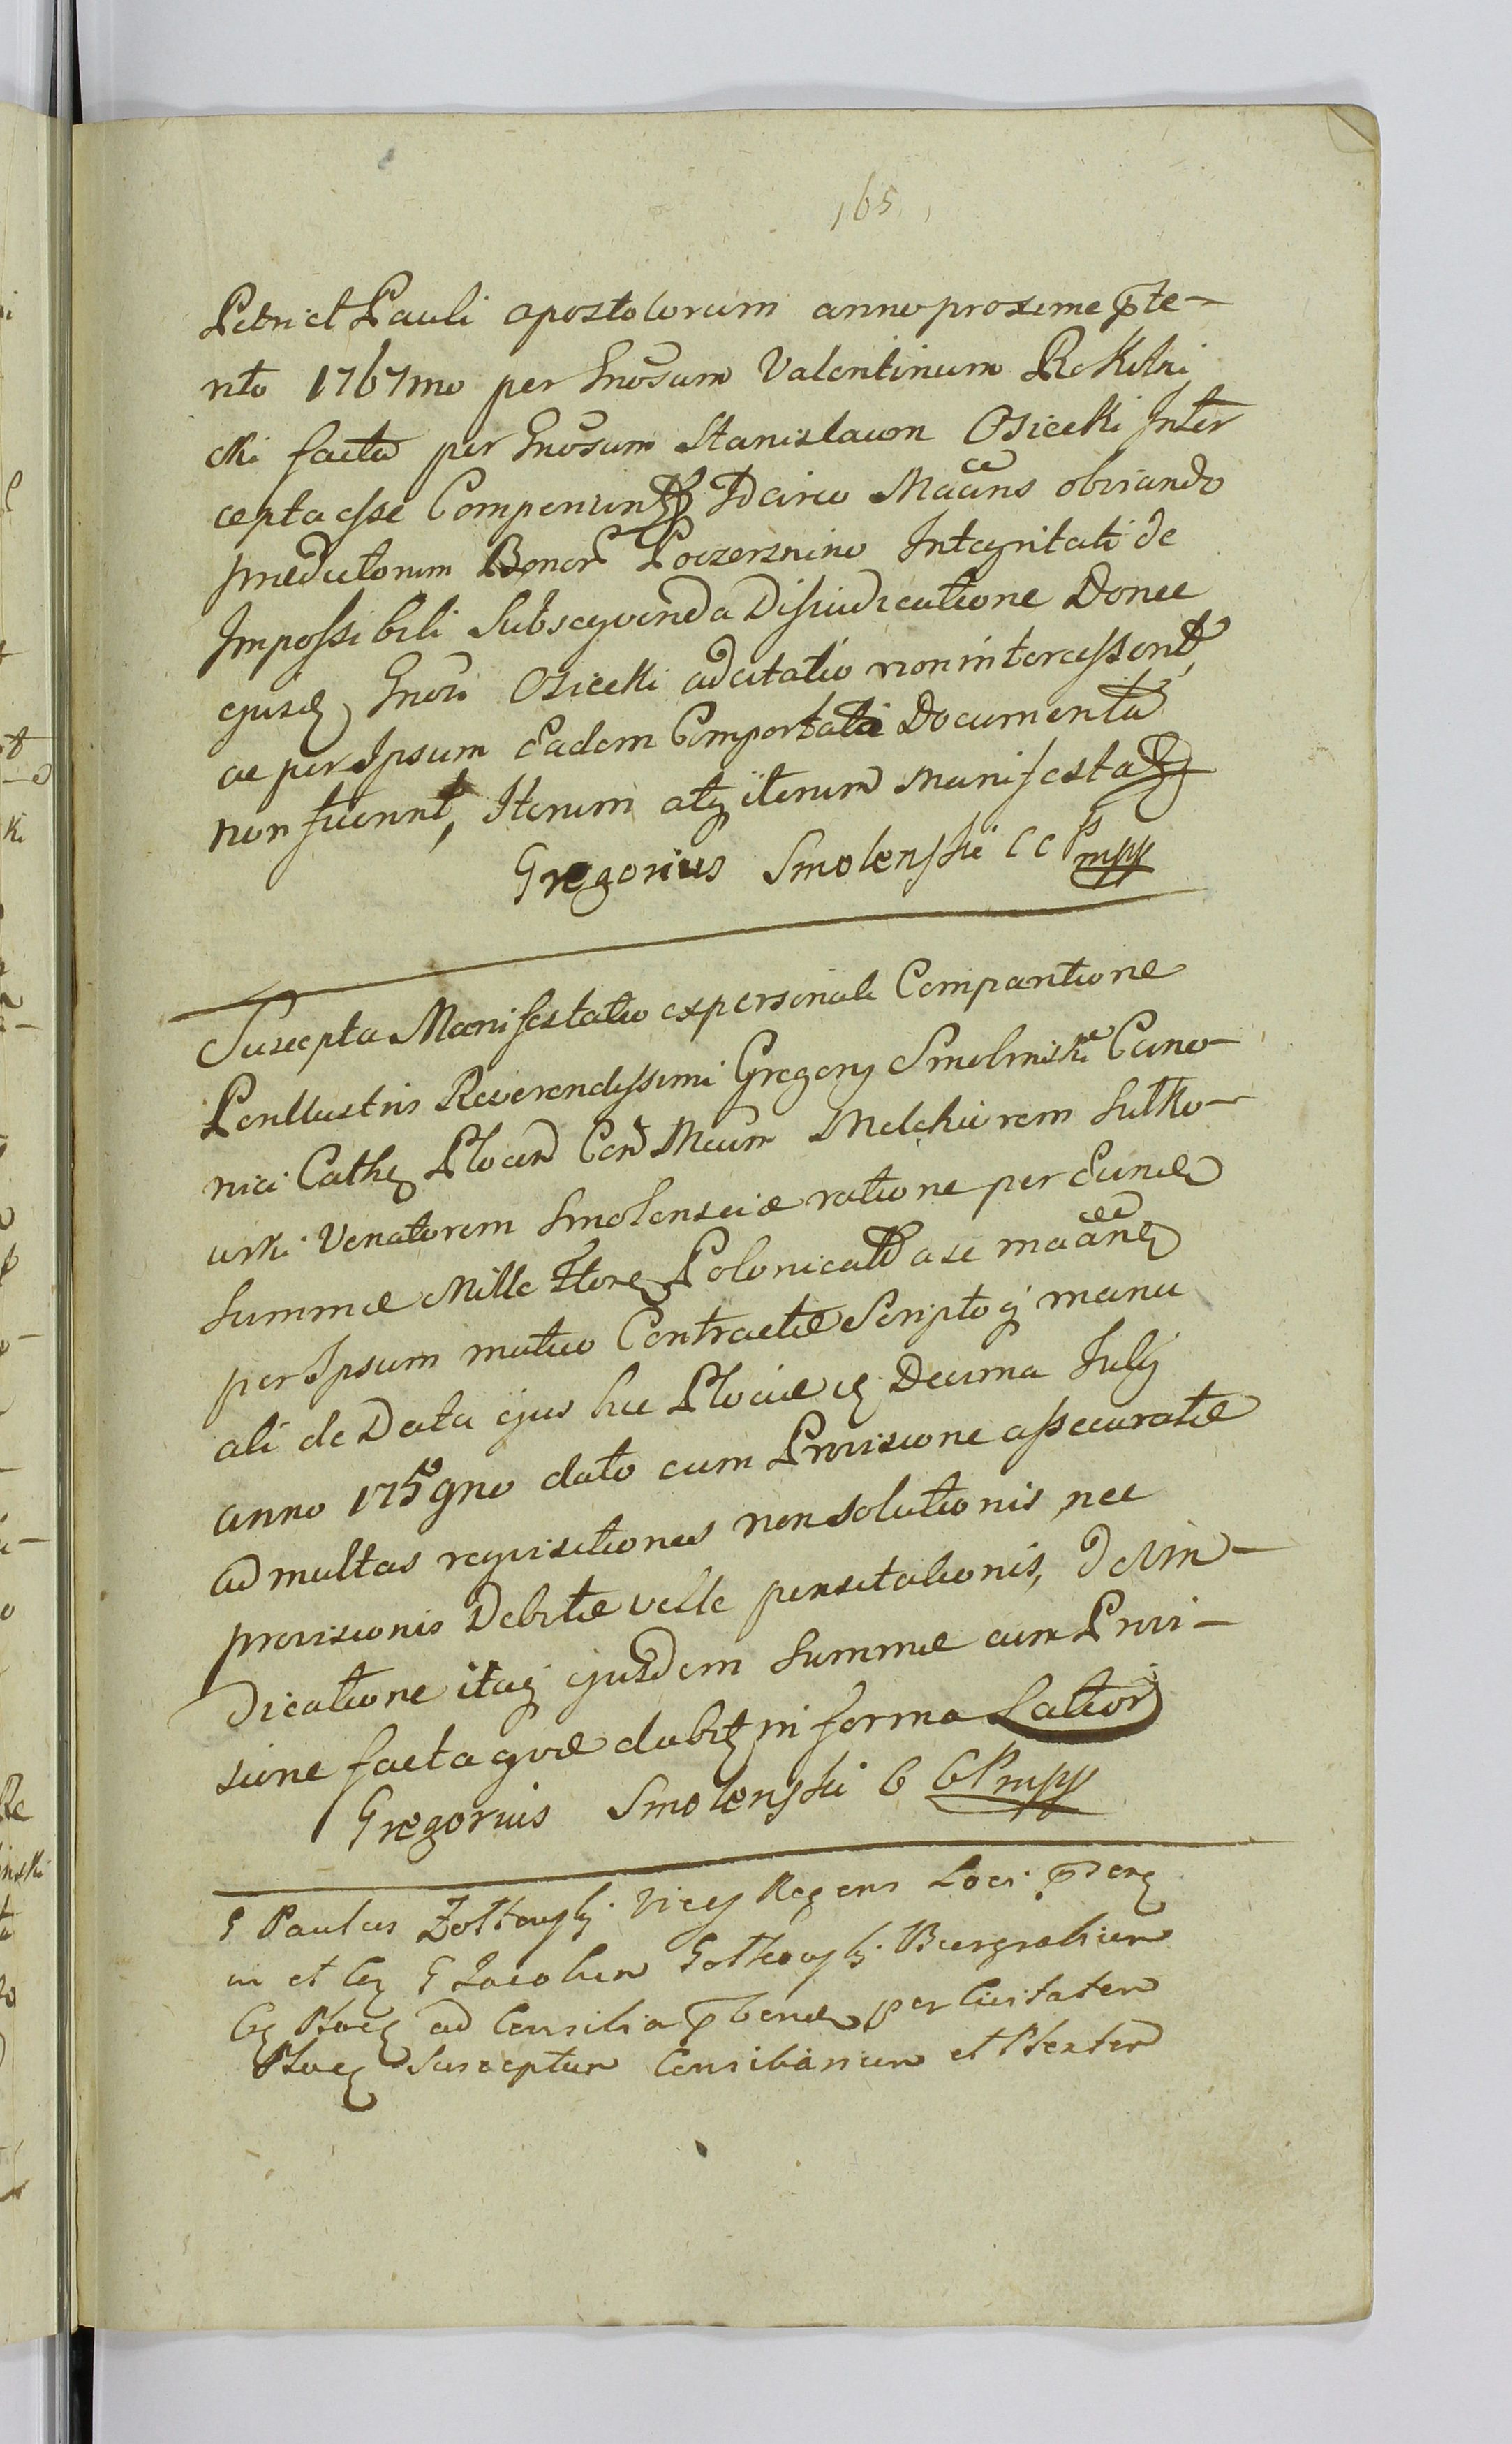 165
Petri et Pauli apostolorum anno proxime p̄te-
rito 1767mo per Gnosum Valentinum Rokitni
cki facta per Gnosum Stanislaum Osiecki Inter
cepta esse Comperiuntr Idcirco Maans obviando
prædictorum Bonor Poczernino Integritati de
Impossibili Subseqvenda Disjudicatione Donec
ejusd Gnosi Osiecki adcitatio non intercesserit,
ac per Ipsum Eadem Comportata Documenta
non fuerint, Iterum atq iterum manifesta
Gregorius Smolenski C C P mpp
Suscepta Manifestatio ex personali Comparitione
Perillustris Reverendissimi Gregorij Smolenski Cano-
nici Cathed Plocen Con Mcum Melchiorem Sutko-
wski Venatorem Smolensciæ ratione per Eund
Summæ Mille Floren Polonicali a se maand
per Ipsum mutuo Contractæ Scripto q manu
ali de Data ejus hic Plociæ Decima Julij
anno 1759no dato cum Provisione assecuratæ
ad multas reqvisitiones non solutionis, nec
provisionis Debitæ velle pensitationis, de vin-
dicatione itaq ejusdem Summæ cum Provi-
sione facta qvæ dabit in forma Latiori
Gregorius Smolenski C C P mpp
G Paulus Zołtowski Vices Regens Loci
et G Jacobum Burgrabium
ad Consilia per Civitatem
Susceptum Consiliarium et